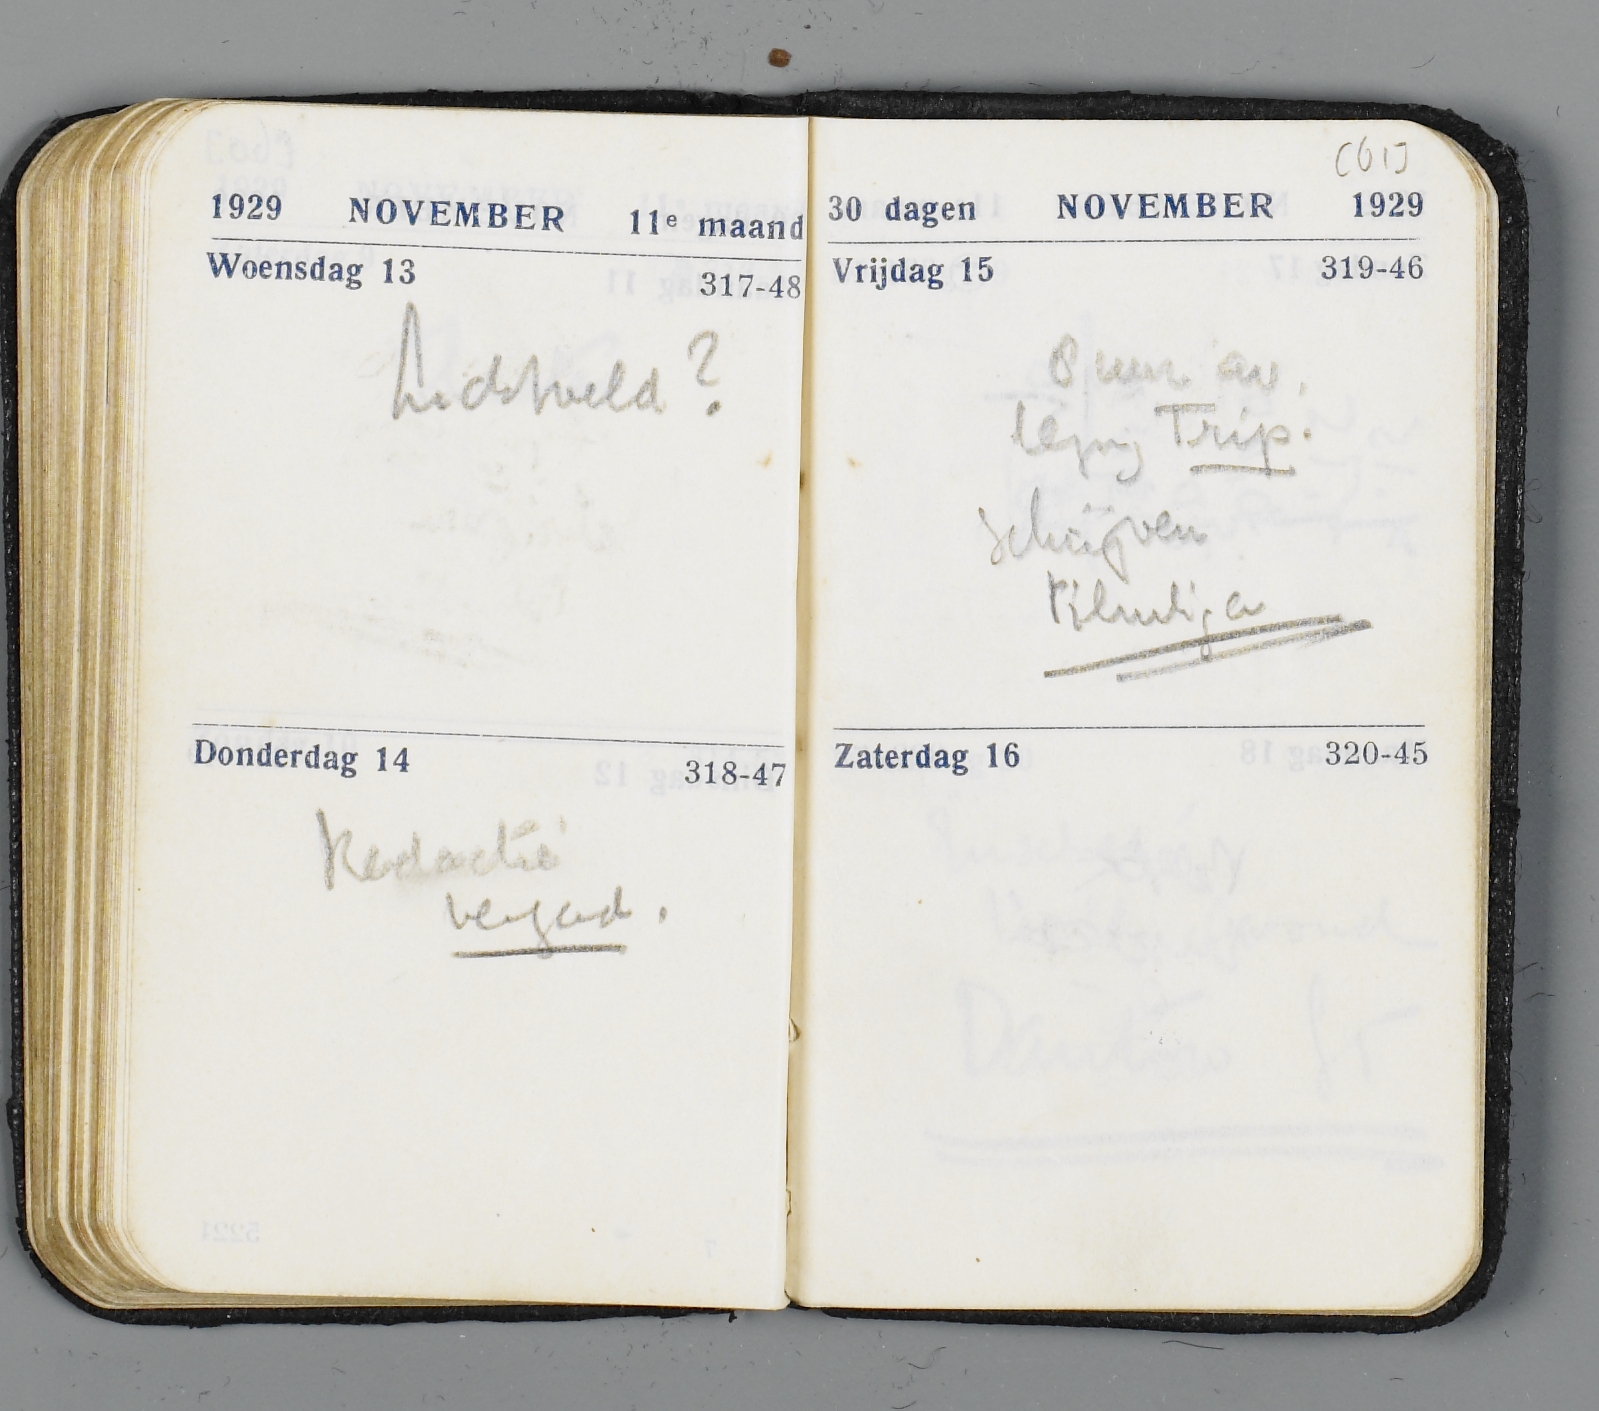 1929 NOVEMBER 11e maand
Woensdag 13 317-48
?
Donderdag 14 318-47
Redactie
vergad.
[61]
30 dagen NOVEMBER 1929
Vrijdag 15 319-46
8 uur av.
Trip.
schrijven
Zaterdag 16 320-45